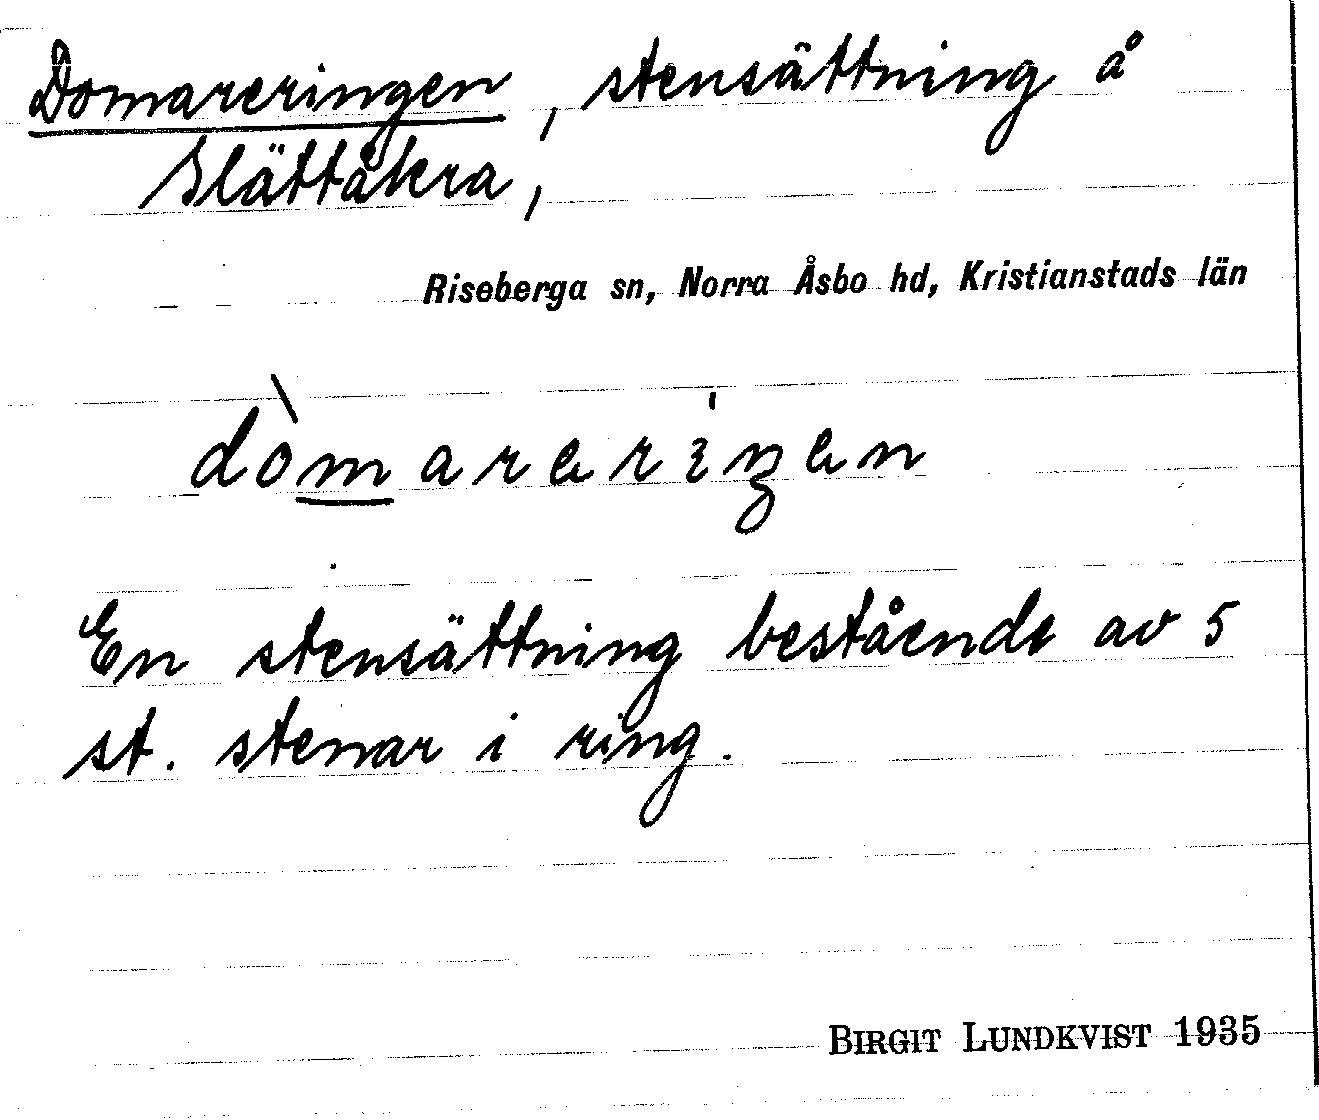 Domareringen, stensättning å
Slättåkra,
Riseberga sn, Norra Åsbo hd, Kristianstads län
dòmareriŋen
En stensättning bestående av 5
st. stenar i ring.
BIRGIT LUNDKVIST 1935